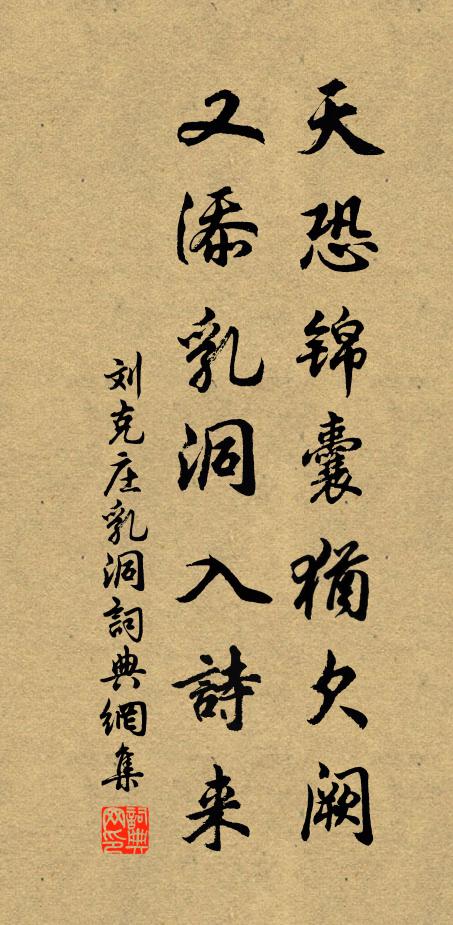 天恐锦囊犹欠阙
又添乳洞入詩来
刘克庄乳洞詞典網集
詞典网印